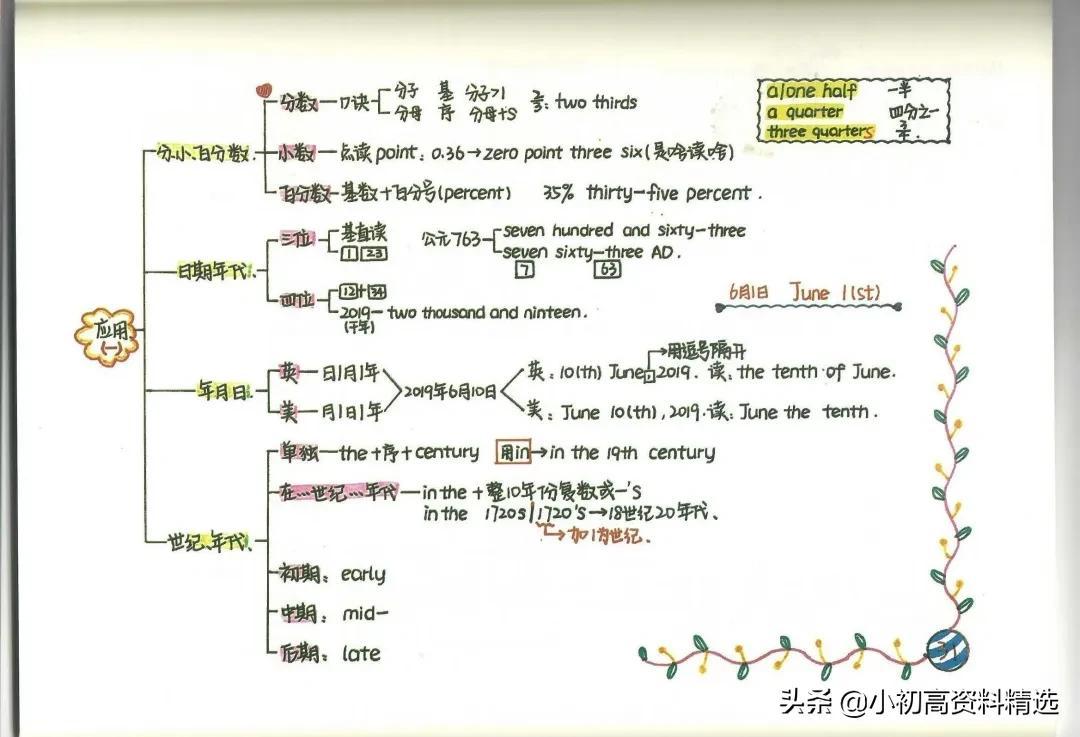 分数 口诀 分子 基 分子>1 2/3: two thirds
分母 序 分母+s
a/one half 一半
a quarter 四分之一
three quarters 3/4.
分.小.百分数.
小数 点读point: 0.36→zero point three six(是啥读啥)
百分数 基数+百分号(percent) 35% thirty-five percent.
日期年代.
三位 基直读
1 23
公元763 seven hundred and sixty-three
seven sixty-three AD.
7 63
四位 12+34
2019- two thousand and ninteen.
(千年)
6月1日 June 1(st)
应用.
(一)
年月日.
英 日|月|年
美 月|日|年
2019年6月10日
用逗号隔开
英: 10(th) June, 2019. 读: the tenth of June.
美: June 10(th), 2019. 读: June the tenth.
世纪、年代.
单独 the+序+century 用in→in the 19th century
在...世纪...年代 in the + 整10年份复数或-'s
in the 1720s/1720's→18世纪20年代.
加1为世纪.
初期: early
中期: mid-
后期: late
31
头条 @小初高资料精选